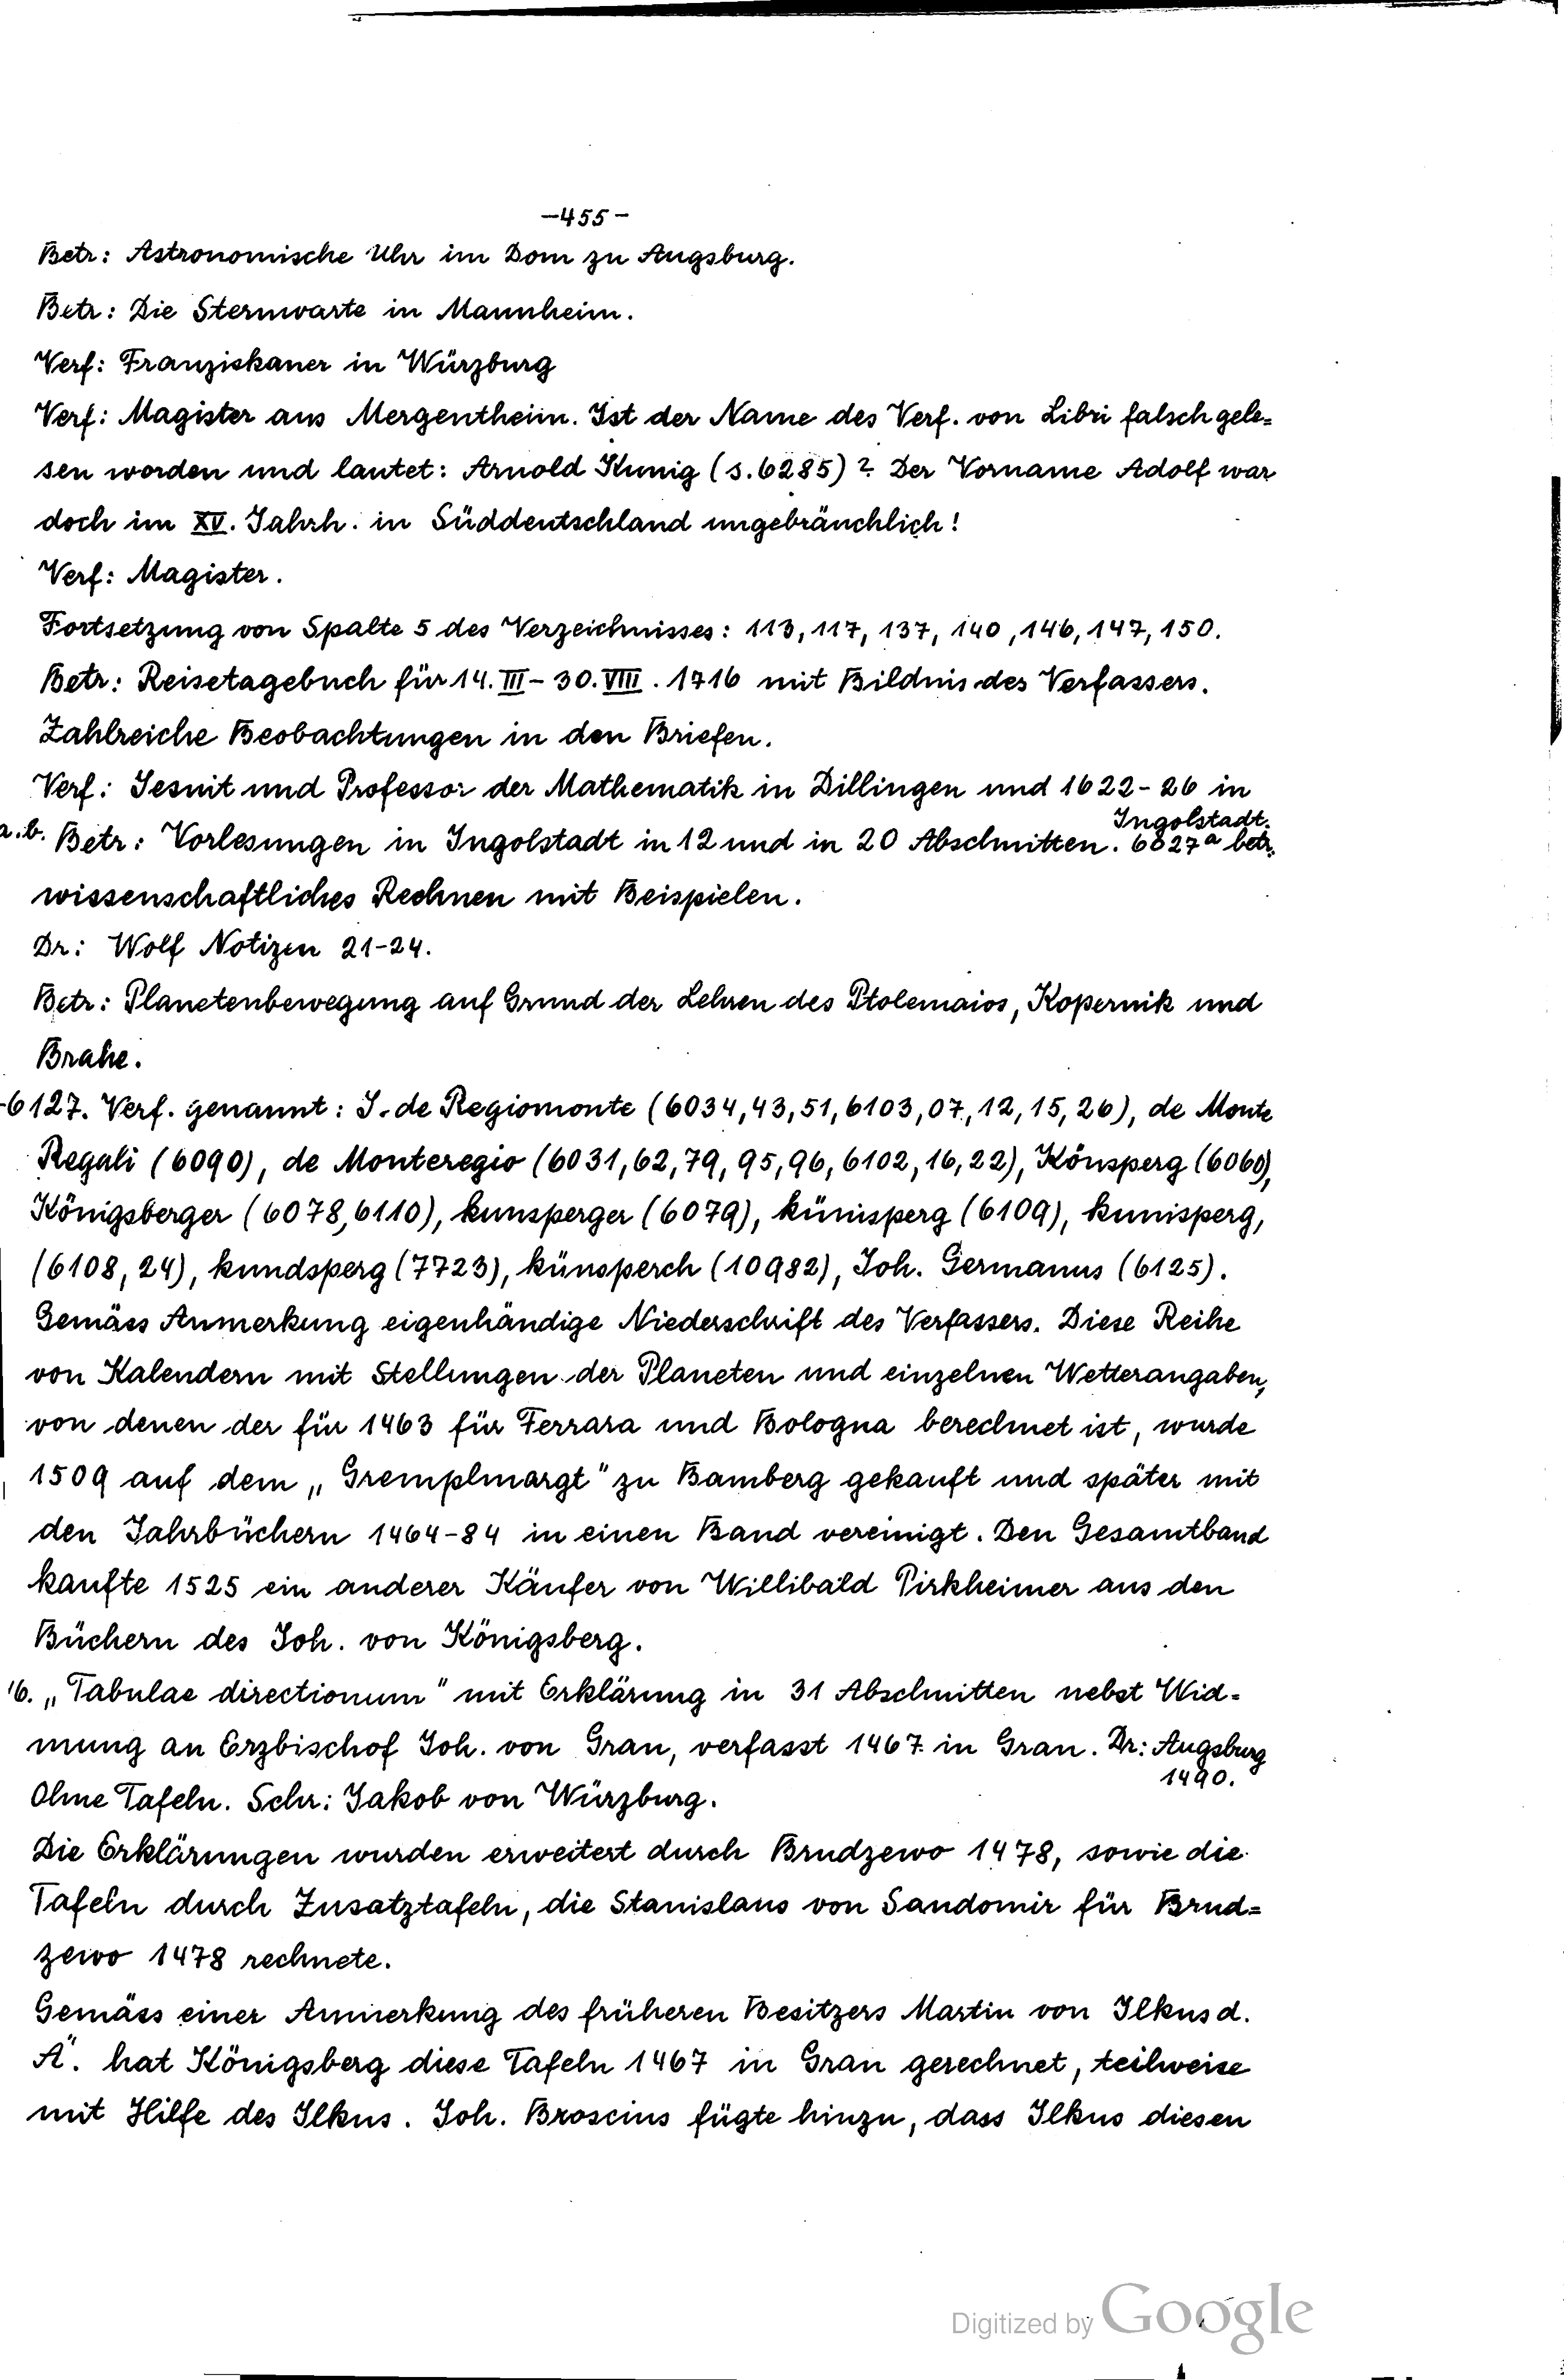 -455-
Betr: Astronomische Uhr im Dom zu Augsburg.
Betr: Die Sternwarte in Mannheim.
Verf: Franziskaner in Würzburg
Verf: Magister aus Mergentheim. Ist der Name des Verf. von Libri falsch gele=
sen worden und lautet: Arnold Kunig (s. 6285)? Der Vorname Adolf war
doch im XV. Jahrh. in Süddeutschland ungebräuchlich!
Verf: Magister.
Fortsetzung von Spalte 5 des Verzeichnisses: 113, 117, 137, 140, 146, 147, 150.
Betr: Reisetagebuch für 14. III - 30. VIII. 1716 mit Bildnis des Verfassers.
Zahlreiche Beobachtungen in den Briefen.
Verf: Jesuit und Professor der Mathematik in Dillingen und 1622-26 in
Ingolstadt.
a. b. Betr: Vorlesungen in Ingolstadt in 12 und in 20 Abschnitten. 6827a betr.
wissenschaftliches Rechnen mit Beispielen.
Dr: Wolf Notizen 21-24.
Betr: Planetenbewegung auf Grund der Lehren des Ptolemaios, Kopernik und
Brahe.
-6127. Verf. genannt: J. de Regiomonte (6034, 43, 51, 6103, 07, 12, 15, 26), de Monte
Regali (6090), de Monteregio (6031, 62, 79, 95, 96, 6102, 16, 22), Könsperg (6060),
Königsberger (6078, 6110), kunsperger (6079), künisperg (6109), kunisperg,
(6108, 24), kundsperg (7723), künsperch (10982), Joh. Germanus (6125).
Gemäss Anmerkung eigenhändige Niederschrift des Verfassers. Diese Reihe
von Kalendern mit Stellungen der Planeten und einzelnen Wetterangaben,
von denen der für 1463 für Ferrara und Bologna berechnet ist, wurde
1509 auf dem „Gremplmargt" zu Bamberg gekauft und später mit
den Jahrbüchern 1464-84 in einen Band vereinigt. Den Gesamtband
kaufte 1525 ein anderer Käufer von Willibald Pirkheimer aus den
Büchern des Joh. von Königsberg.
16. „Tabulae directionum" mit Erklärung in 31 Abschnitten nebst Wid=
mung an Erzbischof Joh. von Gran, verfasst 1467 in Gran. Dr: Augsburg
1490.
Ohne Tafeln. Schr: Jakob von Würzburg.
Die Erklärungen wurden erweitert durch Brudzewo 1478, sowie die
Tafeln durch Zusatztafeln, die Stanislaus von Sandomir für Brud=
zewo 1478 rechnete.
Gemäss einer Anmerkung des früheren Besitzers Martin von Ilkus d.
Ä. hat Königsberg diese Tafeln 1467 in Gran gerechnet, teilweise
mit Hilfe des Ilkus. Joh. Broscius fügte hinzu, dass Ilkus diesen
Digitized by Google